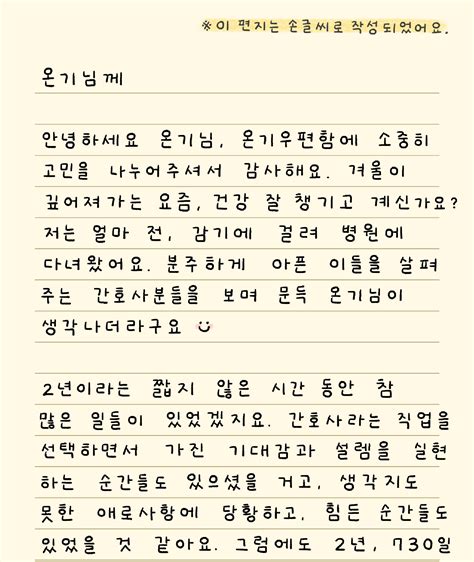 ※이 편지는 손글씨로 작성되었어요.
온기님께
안녕하세요 온기님, 온기우편함에 소중히
고민을 나누어주셔서 감사해요. 겨울이
깊어져가는 요즘, 건강 잘 챙기고 계신가요?
저는 얼마 전, 감기에 걸려 병원에
다녀왔어요. 분주하게 아픈 이들을 살펴
주는 간호사분들을 보며 문득 온기님이
생각나더라구요
2년이라는 짧지 않은 시간 동안 참
많은 일들이 있었겠지요. 간호사라는 직업을
선택하면서 가진 기대감과 설렘을 실현
하는 순간들도 있으셨을 거고, 생각지도
못한 애로사항에 당황하고, 힘든 순간들도
있었을 것 같아요. 그럼에도 2년, 730일